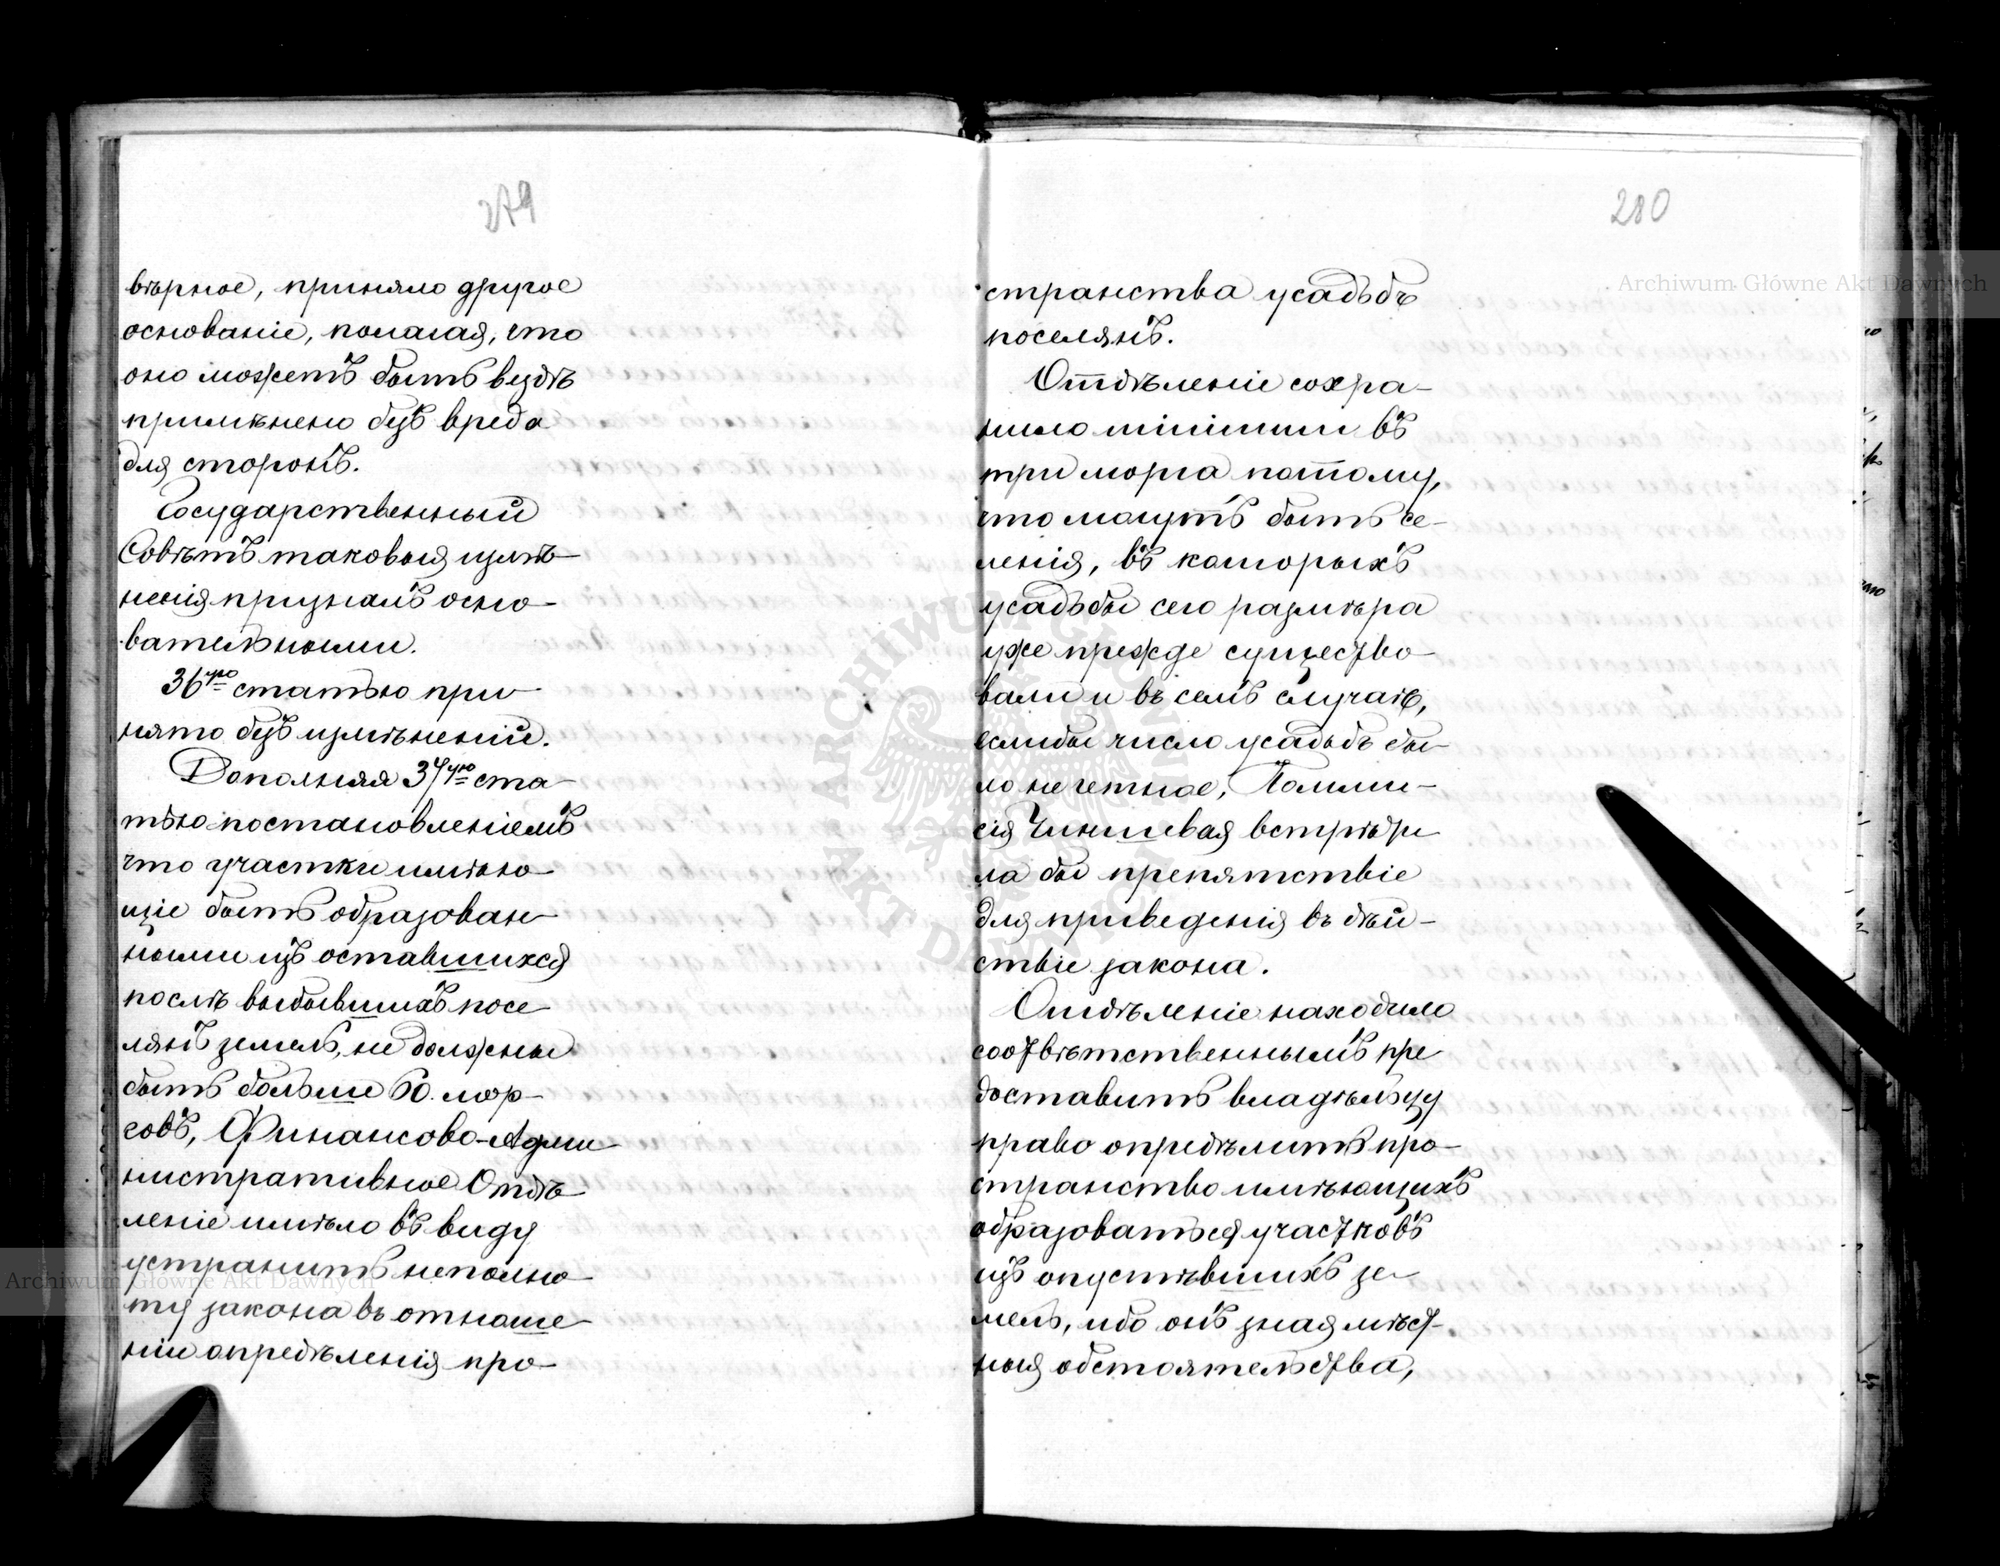 279
вѣрное, приняло другое
основаніе, полагая, что
оно можетъ быть вездѣ
примѣнено безъ вреда
для сторонъ.
Государственный
Совѣтъ таковыя измѣ-
ненія призналъ осно-
вательными.
36ую статью при-
нято безъ измѣненій.
Дополняя 37ую ста-
тью постановленіемъ
что участки имѣю-
щіе быть образован-
ными изъ оставшихся
послѣ выбывшихъ посе-
лянъ земель, не должны
быть больше 60. мор-
говъ, Финансово-Адми-
нистративное Отдѣ-
леніе имѣло въ виду
устранить неполно-
ту закона въ отноше-
ніи опредѣленія про-
280
странства усадьбъ
поселянъ.
Отдѣленіе сохра-
нило minimum въ
три морга потому,
что могутъ быть се-
ленія, въ которыхъ
усадьбы сего размѣра
уже прежде существо-
вали и въ семъ случаѣ,
еслибы число усадьбъ бы-
ло нечетное, Коммис-
сія Чиншевая встрѣти-
ла бы препятствіе
для приведенія въ дѣй-
ствіе закона.
Отдѣленіе находило
соотвѣтственнымъ пре-
доставить владѣльцу
право опредѣлить про-
странство имѣющихъ
образоваться участковъ
изъ опустѣвшихъ зе-
мель, ибо онъ зная мѣст-
ныя обстоятельства,
Archiwum Główne Akt Dawnych
Archiwum Główne Akt Dawnych
ARCHIWUM GŁÓWNE AKT DAWNYCH